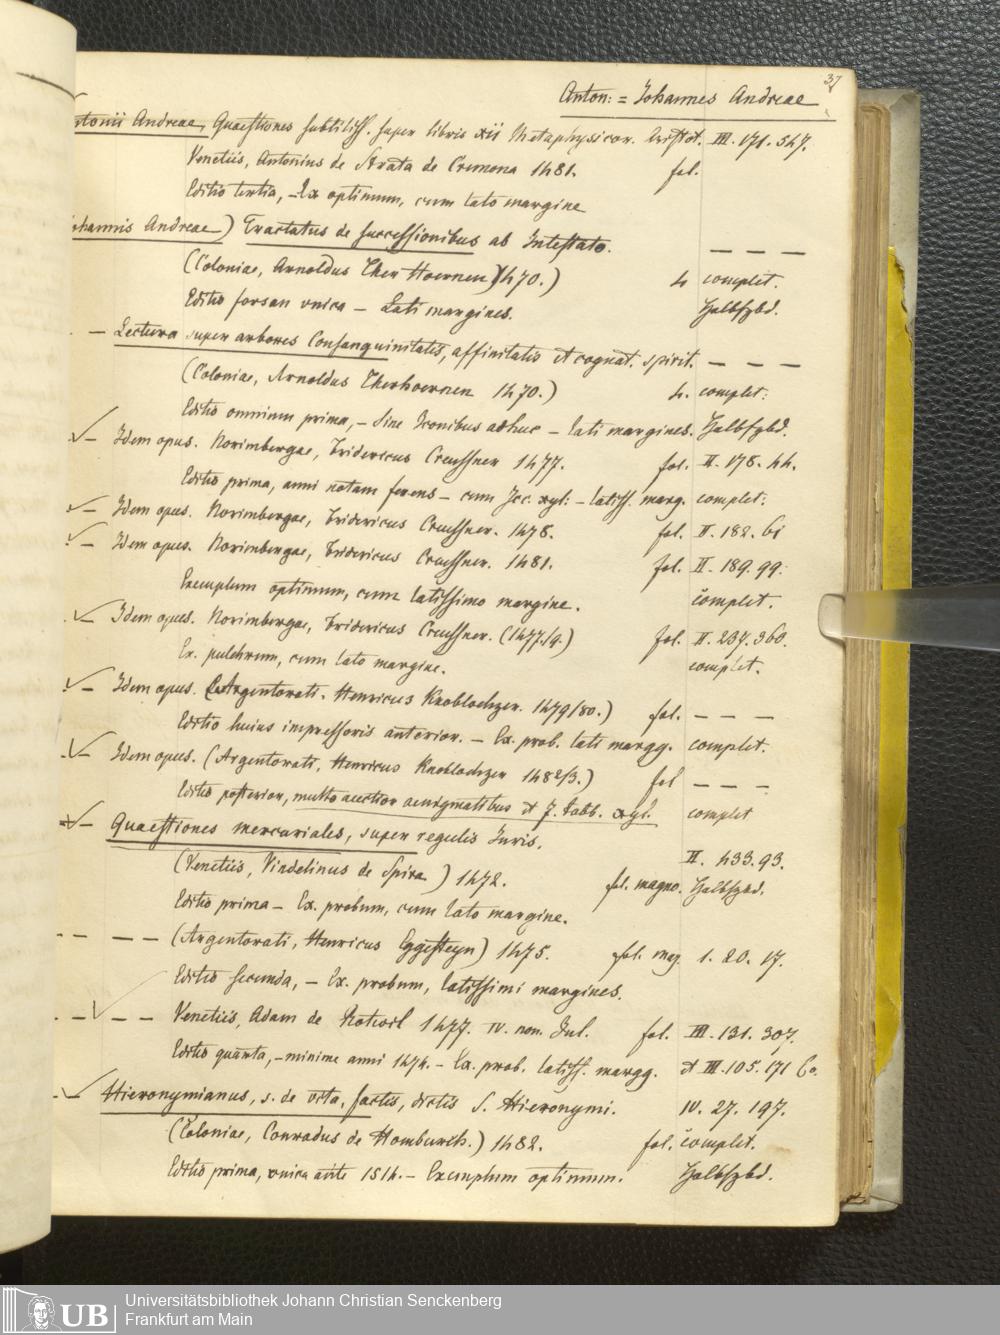 37
Anton: = Johannes Andreae
ntonii Andreae, Quaestiones subtiliss. super libris xii Metaphysicor. Aristot. III. 171. 547.
Venetiis, Antonius de Strata de Cremona 1481. fol.
Editio tertia, – Ex optimum, cum lato margine
ohannis Andreae) Tractatus de successionibus ab Intestato. — — —
(Coloniae, Arnoldus Ther Hoernen) 1470.) 4 complet.
Editio forsan unica – Lati margines. Halbfzbd.
– Lectura super arbores Consanguinitatis, affinitatis et cognat. spirit. — — —
(Coloniae, Arnoldus Therhoernen 1470.) 4. complet:
Editio omnium prima, – sine Iconibus adhuc – lati margines. Halbfzbd.
– Idem opus. Norimbergae, Fridericus Creussner 1477. fol. II. 178. 44.
Editio prima, anni notam ferens – cum Icc. xyl: – latiss. marg. complet:
– Idem opus. Norimbergae, Fridericus Creussner. 1478. fol. II. 182. 61
– Idem opus. Norimbergae, Fridericus Creussner. 1481. fol. II. 189. 99.
Exemplum optimum, cum latissimo margine. complet.
– Idem opus. Norimbergae, Fridericus Creussner. (1477/9.) fol. II. 237. 360.
Ex. pulchrum, cum lato margine. complet.
– Idem opus. Argentorati. Henricus Knoblochzer. 1479/80.) fol. — — —
Editio huius impressoris anterior. – Ex. prob. lati margg. complet.
– Idem opus. (Argentorati, Henricus Knoblochzer 1482/3.) fol — — —
Editio posterior, multo auctior aenigmatibus et 7. tabb. xyl. complet
– Quaestiones mercuriales, super regulis Iuris. II. 433. 93.
(Venetiis, Vindelinus de Spira) 1472. fol. magno. Halbfzbd.
Editio prima – Ex. probum, cum lato margine.
– – — — (Argentorati, Henricus Eggesteyn) 1475. fol. maj. 1. 20. 17.
Editio secunda, – Ex. probum, latissimi margines.
– – — — Venetiis, Adam de Rotwil 1477. IV. non. Iul. fol. III. 131. 307.
Editio quanta, – minime anni 1474. – Ex. prob. latiss. margg. et III. 105. 171 b.
– Hieronymianus, s. de vita, factis, dictis S. Hieronymi. IV. 27. 197.
(Coloniae, Conradus de Homburch.) 1482. fol. complet.
Editio prima, unica ante 1514. – Exemplum optimum. Halbfzbd.
UB
Universitätsbibliothek Johann Christian Senckenberg
Frankfurt am Main